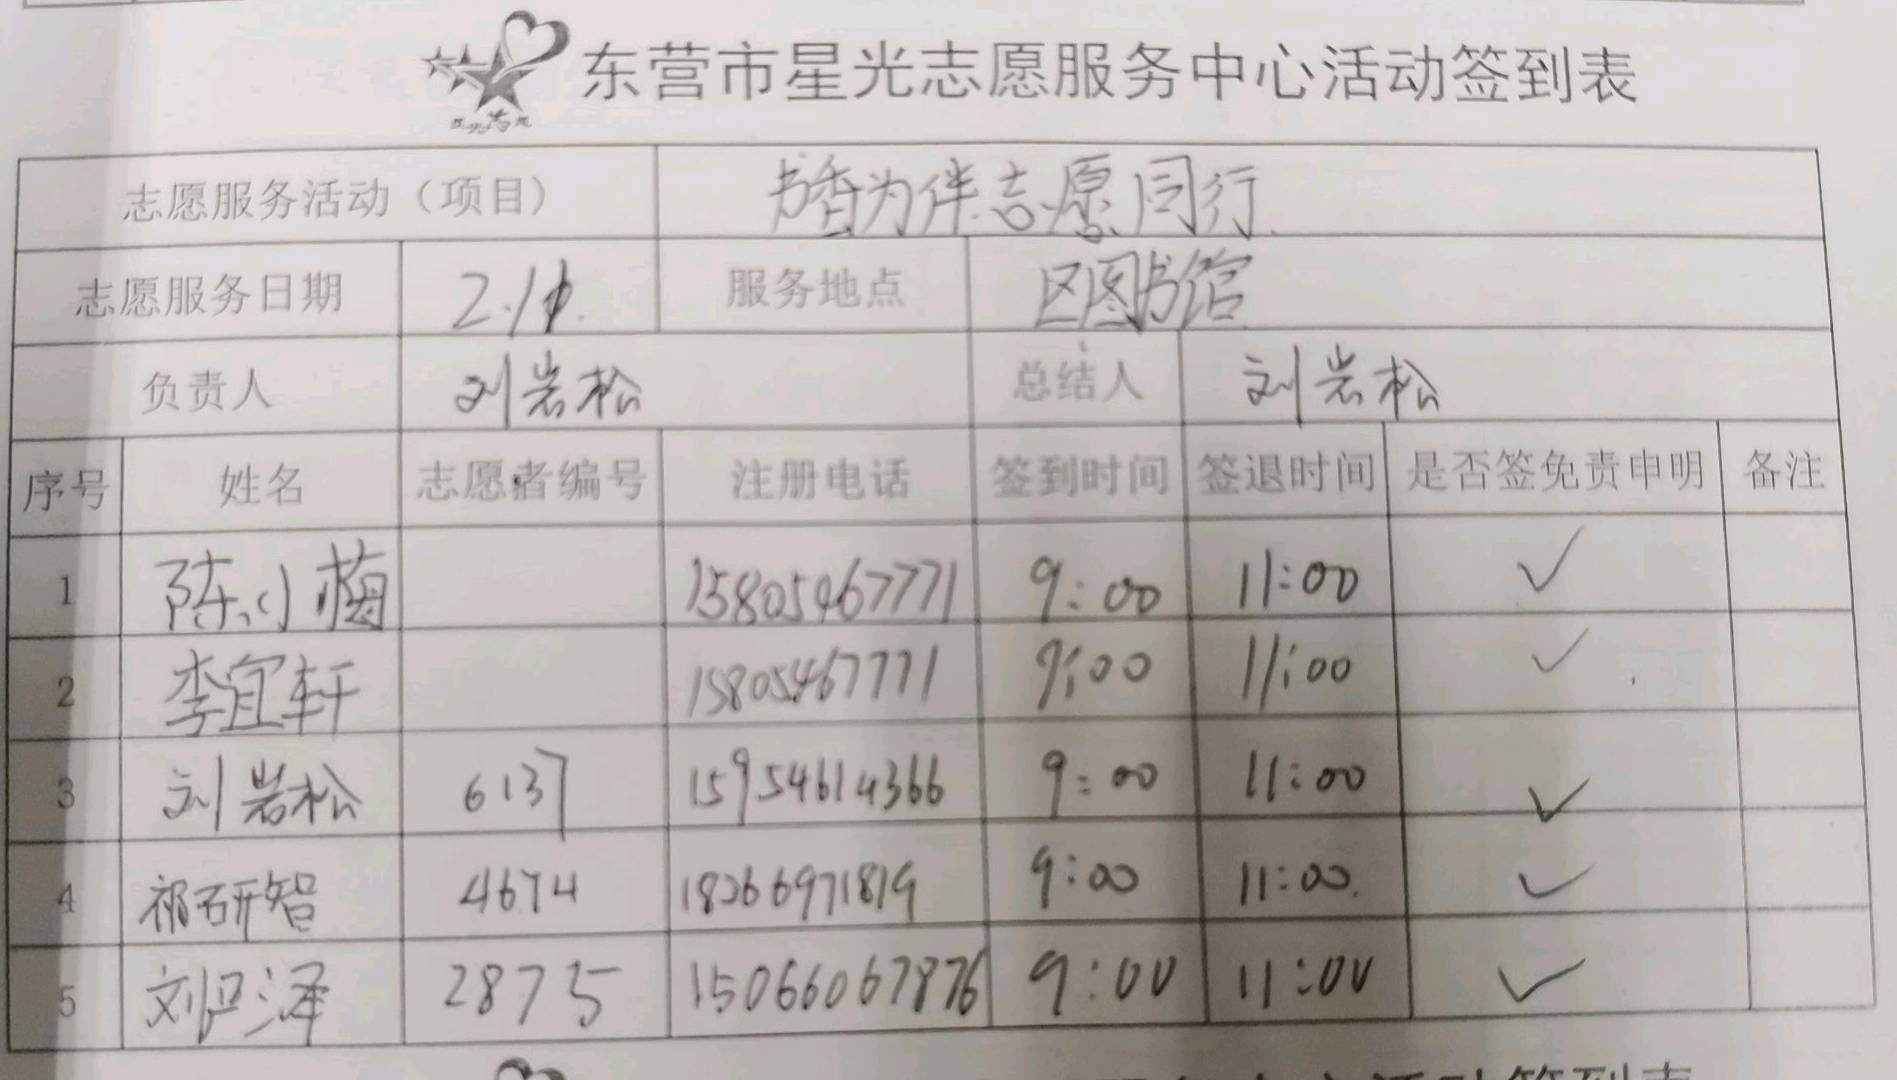 东营市星光志愿服务中心活动签到表
志愿服务活动（项目） 书香为伴志愿同行
志愿服务日期 服务地点 区图书馆
负责人 刘岩松 总结人 刘岩松
序号 姓名 志愿者编号 注册电话 签到时间 签退时间 是否签免责申明 备注
1 陈小梅 15805467771 9:00 11:00 ✓
2 李宜轩 15805467771 9:00 11:00 ✓
3 刘岩松 6137 15954614366 9:00 11:00 ✓
4 祁研智 4674 18266971819 9:00 11:00 ✓
5 2875 15066067876 9:00 11:00 ✓